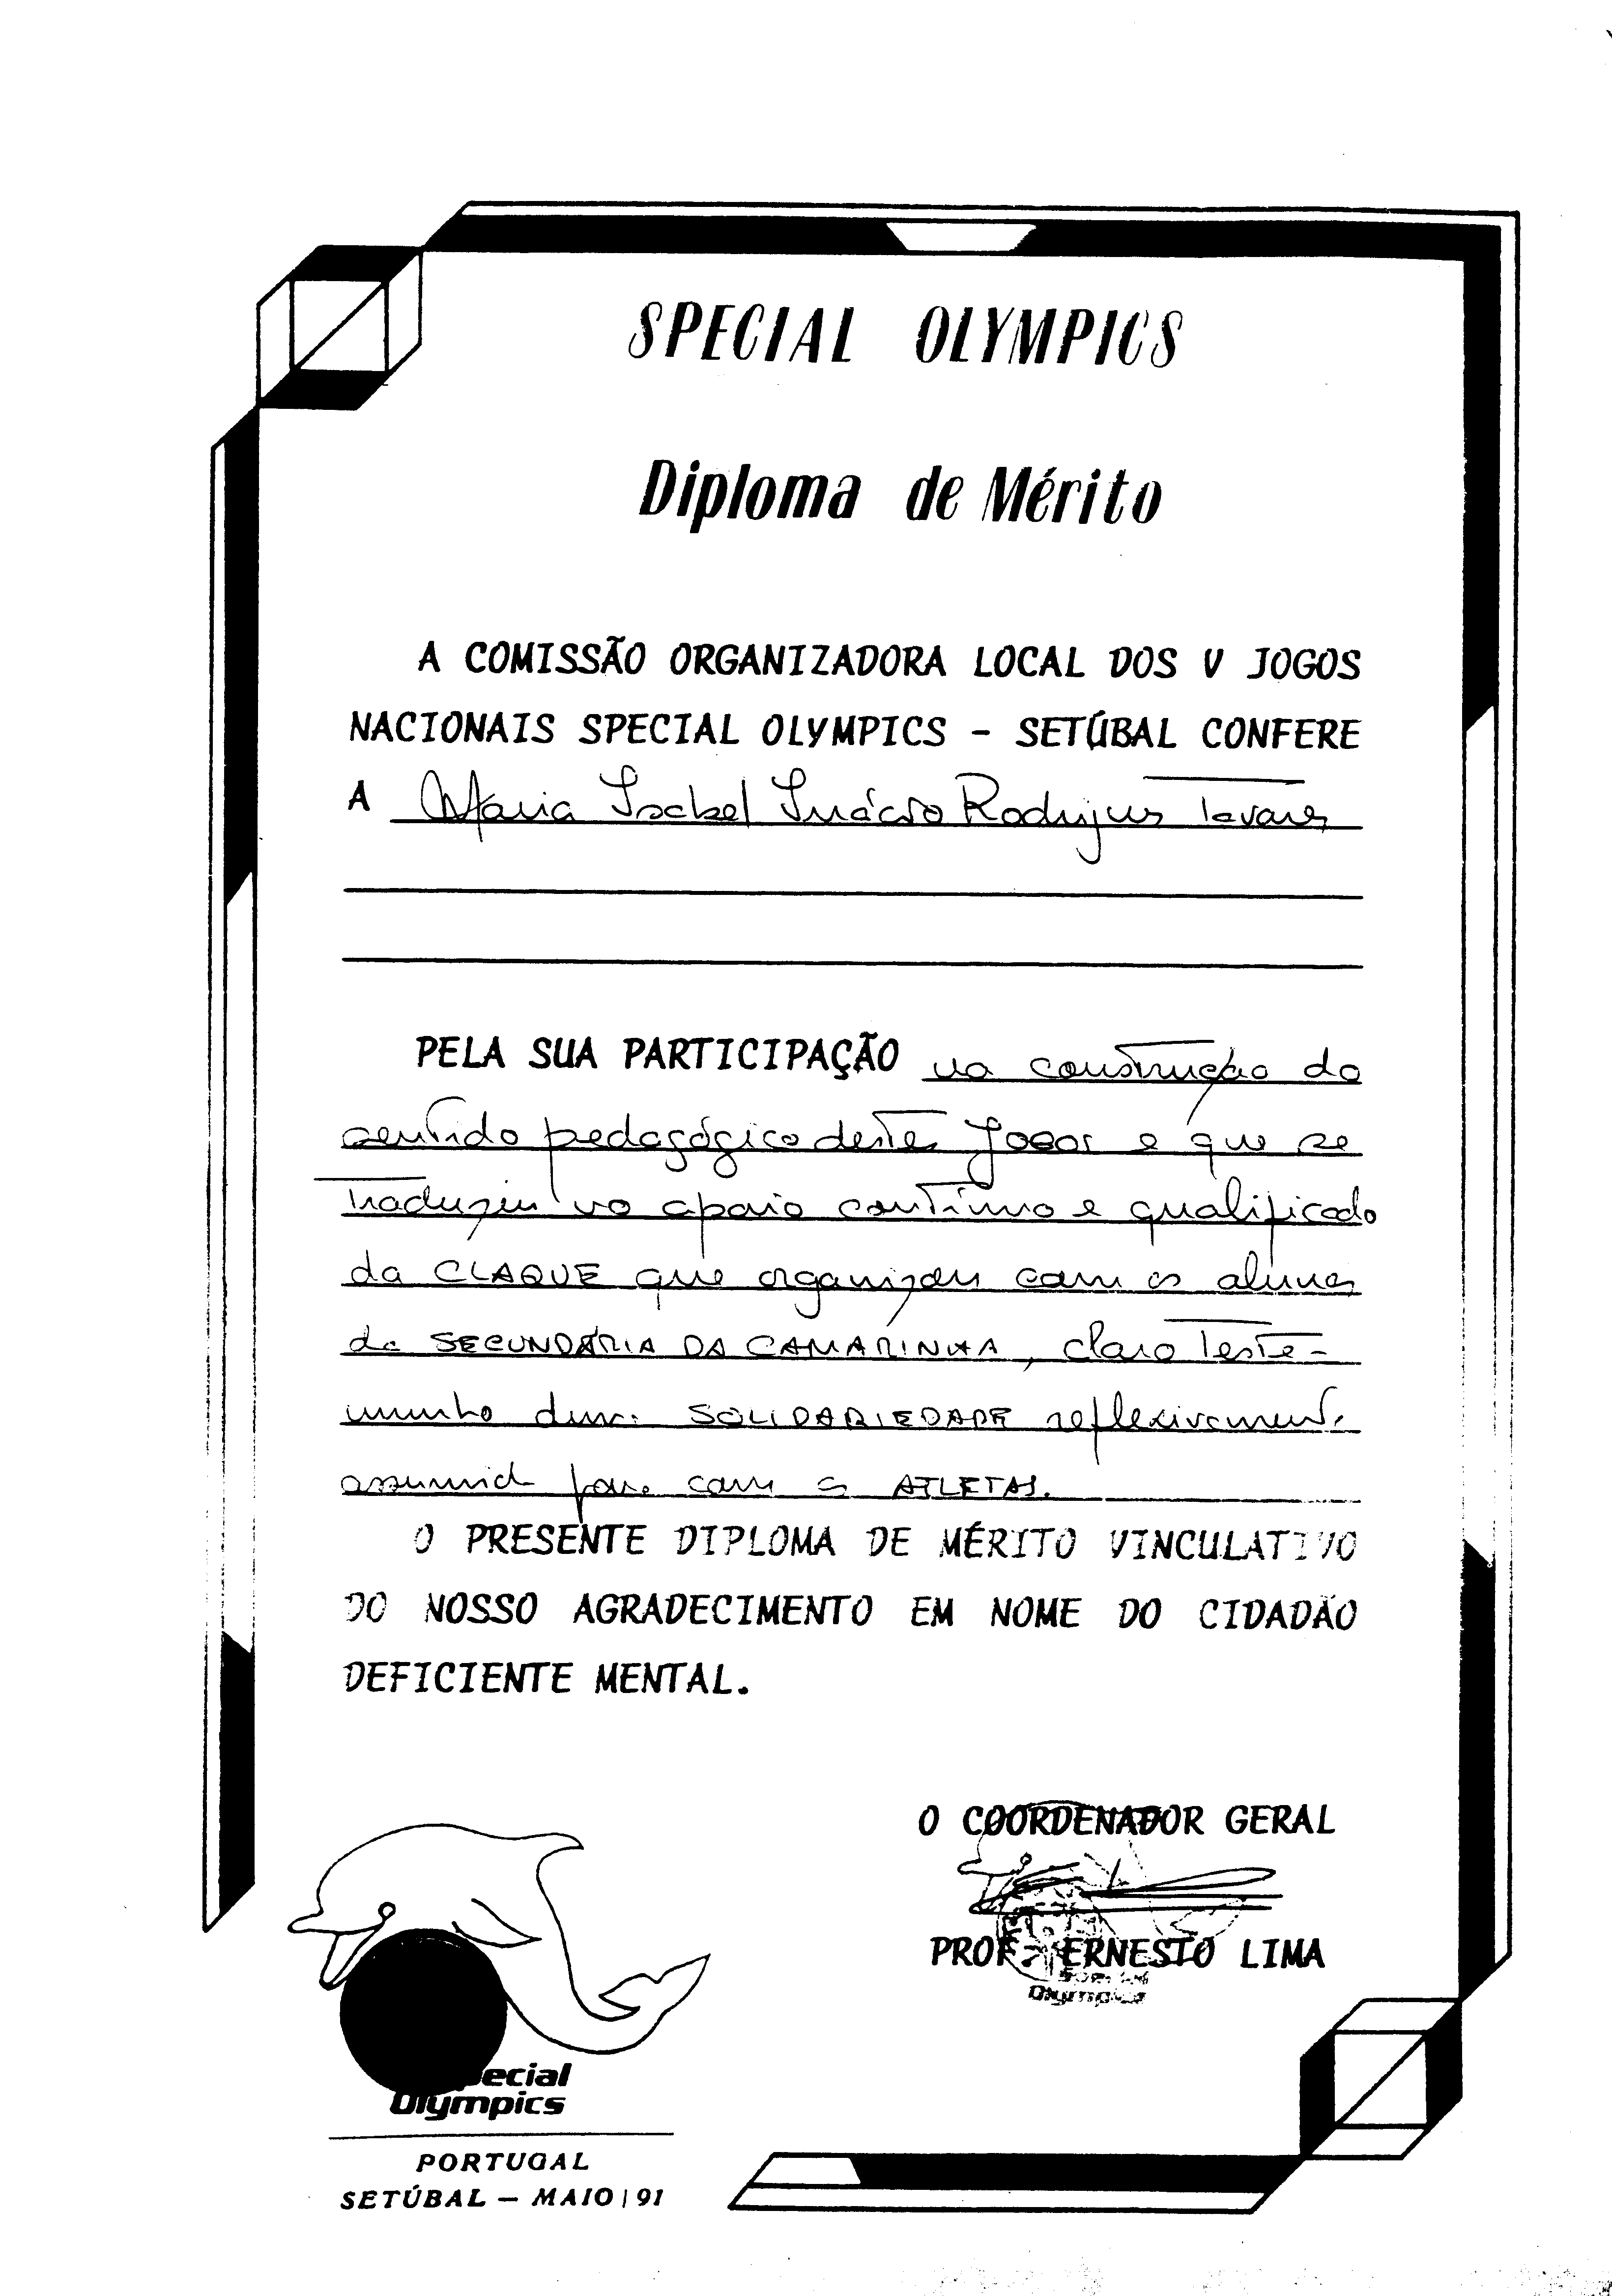 SPECIAL OLYMPICS
Diploma de Mérito
A COMISSÃO ORGANIZADORA LOCAL DOS V JOGOS
NACIONAIS SPECIAL OLYMPICS - SETÚBAL CONFERE
A Maria Isabel Inácio Rodrigues Tavares
PELA SUA PARTICIPAÇÃO na construção do
sentido pedagógico destes Jogos e que se
traduziu no apoio contínuo e qualificado
da CLAQUE que organizou com os alunos
da SECUNDÁRIA DA CAMARINHA, claro teste-
munho duma SOLIDARIEDADE reflexivamente
assumida para com os ATLETAS.
O PRESENTE DIPLOMA DE MÉRITO VINCULATIVO
DO NOSSO AGRADECIMENTO EM NOME DO CIDADÃO
DEFICIENTE MENTAL.
O COORDENADOR GERAL
PROF. ERNESTO LIMA
Special
Olympics
ecial
Olympics
PORTUGAL
SETÚBAL - MAIO | 91